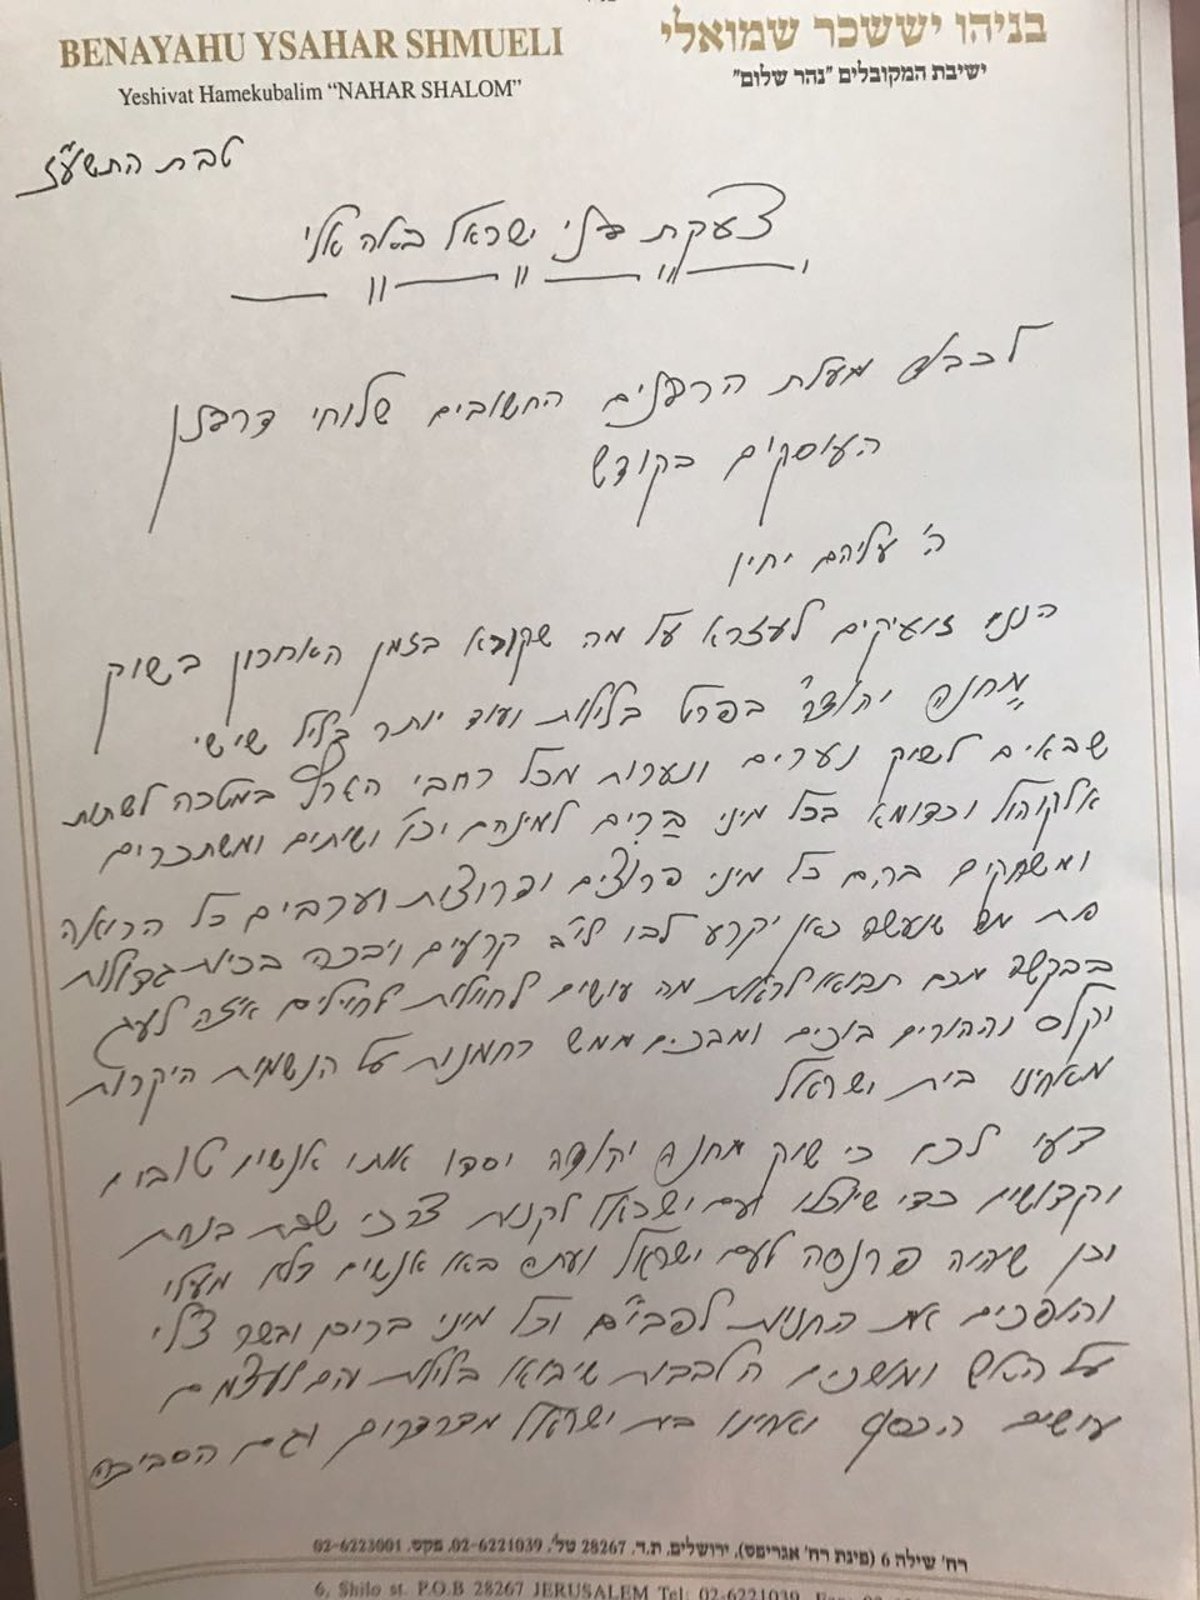 בניהו יששכר שמואלי
BENAYAHU YSAHAR SHMUELI
ישיבת המקובלים "נהר שלום"
Yeshivat Hamekubalim "NAHAR SHALOM"
טבת התשע"ז
צעקת בני ישראל באה אלי
לכבוד מעלת הרבנים החשובים שלוחי דרבנן
העוסקים בקודש
ה' עליהם יחיו
הננו זועיקים לעזרא על מה שקורא בזמן האחרון בשוק
מחנה יהודה בפרט בלילות ועוד יותר בליל שישי
שבאים לשוק נערים ונערות מכל רחבי הארץ במטרה לשתות
אלקוהול וכדומא בכל מיני בַּרִים למינהם וכו' ושותים ומשתכרים
ומשחקים בהם כל מיני פרוצים ופרוצות וערבים כל הרואה
את מה שנעשה כאן יקרע לבו לי"ב קרעים ויבכה בכיות גדולות
בבקשה מכם תבואו לראות מה עושים לחיילות לחיילים איזה לעג
וקלס וההורים בוכים ומבכים ממש רחמנות על הנשמות היקרות
מאחינו בית ישראל
דעו לכם כי שוק מחנה יהודה יסדו אותו אנשים טובים
וקדושים כדי שיוכלו עם ישראל לקנות צרכי שבת בנחת
וכן שיהיה פרנסה לעם ישראל ועתה באו אנשים בלא מעלו
והופכים את החנויות לפבי"ם וכל מיני ברים ובשר צלי
על האש ומושכים הלבבות שיבואו בלילות והם לעצמם
עושים הכסף ואחינו בית ישראל מדרדרים וגם הסביבה
רח' שילה 6 (פינת רח' אגריפס), ירושלים, ת.ד. 28267 טל'. 02-6221039, פקס. 02-6223001
6, Shilo st. P.O.B 28267 JERUSALEM Tel: 02-6221039